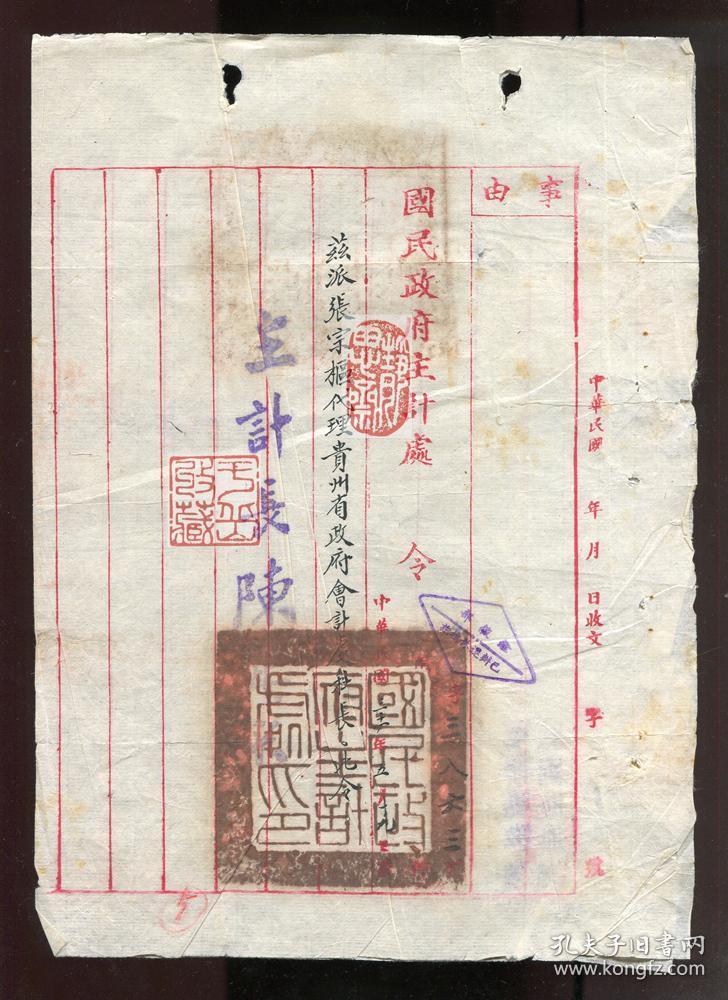 事由
中華民國 年 月 日收文 字 號
國民政府主計處 令
字三八六三
中華民國三十一年五月
茲派張宗樞代理貴州省政府會計處科長。此令
主計長陳
國民政府主計處印
5
孔夫子旧书网
www.kongfz.com